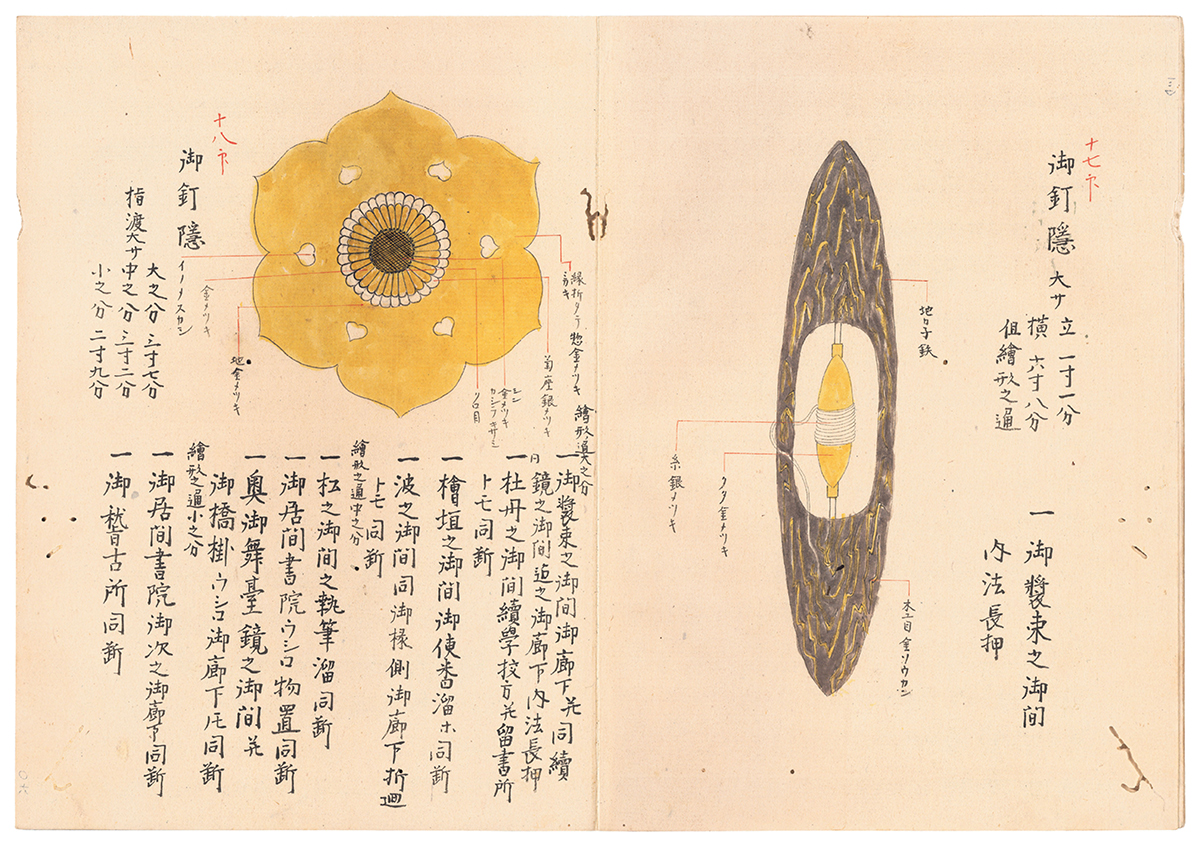 十七印
御釘隠 大サ
立 一寸一分
横 六寸八分
但繪形之通
一御装束之御間
内法長押
地四分一鉄
木目金ソウカン
クタ金メツキ
糸銀メツキ
十八印
御釘隠
指渡大サ
大之分 三寸七分
中之分 三寸二分
小之分 二寸九分
イノメスカシ
金メツキ
地金メツキ
縁折タテ惣金メツキ
菊座銀メツキ
シン
金メツキ
クロ目
繪形之通大之分
一御装束之御間御廊下并同續
鏡之御間迠之御廊下内法長押
一杜丹之御間續學校方并留書所
トモ同断
一檜垣之御間御使番溜ホ同断
一波之御間同御椽側御廊下折廻
トモ同断
繪形之通中之分
一松之御間之執筆溜同断
一御居間書院ウシロ物置同断
一奥御舞臺鏡之御間并
御橋掛ウシロ御廊下トモ同断
繪形之通小之分
一御居間書院御次之御廊下同断
一御稽古所同断